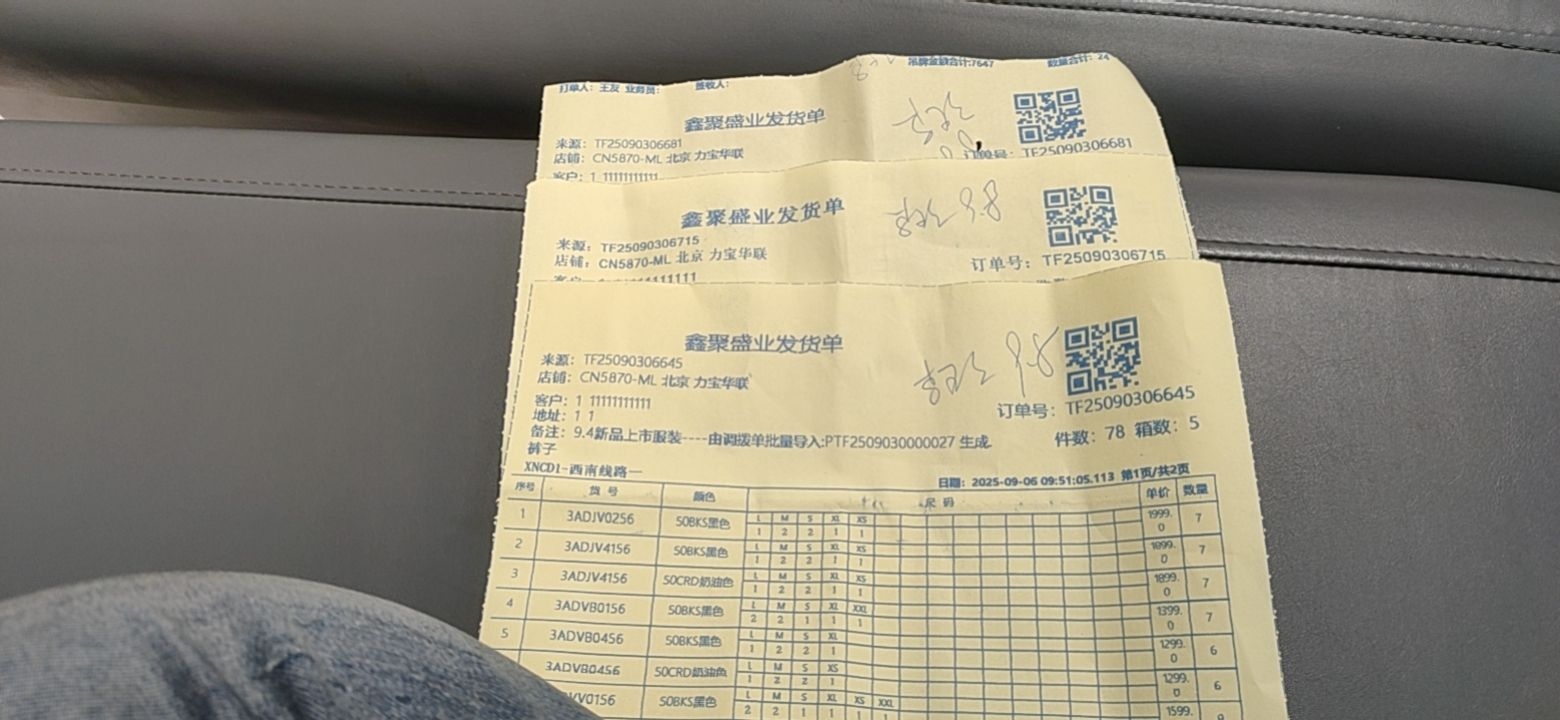 吊牌金额合计:7647 数量合计: 24
打单人: 王友 业务员: 签收人:
鑫聚盛业发货单
来源: TF25090306681
店铺: CN5870-ML 北京 力宝华联
订单号: TF25090306681
客户: 1 11111111111
鑫聚盛业发货单
来源: TF25090306715
店铺: CN5870-ML 北京 力宝华联
订单号: TF25090306715
鑫聚盛业发货单
来源: TF25090306645
店铺: CN5870-ML 北京 力宝华联
订单号: TF25090306645
客户: 1 11111111111
地址: 1 1
备注: 9.4新品上市服装----由调拨单批量导入:PTF2509030000027 生成.
件数: 78 箱数: 5
裤子
XNCD1-西南线路一
日期: 2025-09-06 09:51:05.113 第1页/共2页
序号 货 号 颜色 尺 码 单价 数量
1 3ADJV0256 50BKS黑色 L M S XL XS 1999.0 7
1 2 2 1 1
2 3ADJV4156 50BKS黑色 L M S XL XS 1899.0 7
1 2 2 1 1
3 3ADJV4156 50CRD奶油色 L M S XL XS 1899.0 7
1 2 2 1 1
4 3ADVB0156 50BKS黑色 L M S XL XXL 1399.0 7
2 2 1 1 1
5 3ADVB0456 50BKS黑色 L M S XL 1299.0 6
1 2 2 1
3ADVB0456 50CRD奶油色 L M S XS 1299.0 6
1 2 2 1
V0156 50BKS黑色 L M S XL XS XXL 1599.
2 2 1 1 1 1